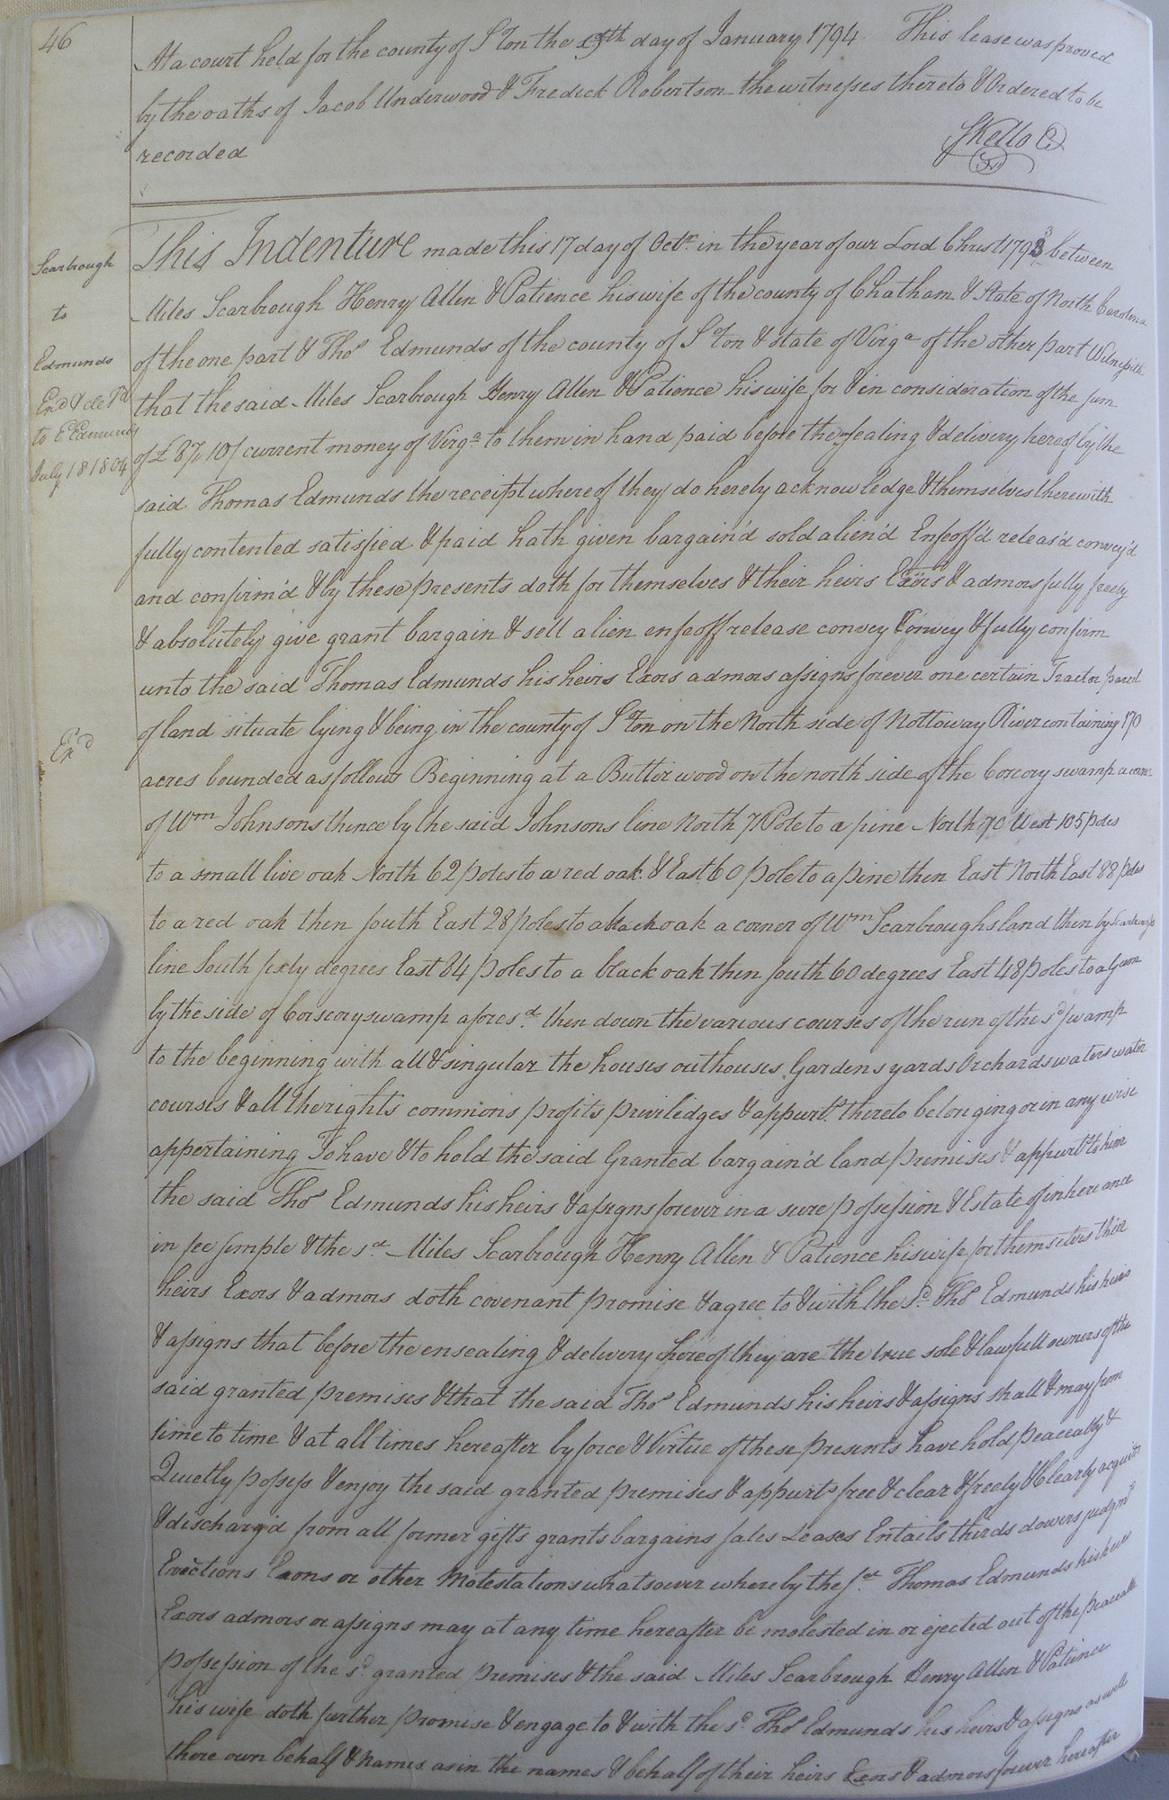 46
At a court held for the county of S°ton the 9th day of January 1794 This lease was proved
by the oaths of Jacob Underwood & Fredick Robertson the witnesses thereto & Ordered to be
recorded
SKello C
Scarbrough
to
Edmunds
Exd & deld
to E Edmunds
July 18 1804
Exd
This Indenture made this 17 day of Octr. in the year of our Lord Christ 1793 between
Miles Scarbrough Henry Allen & Patience his wife of the county of Chatham & State of North Carolina
of the one part & Thos Edmunds of the county of S°ton & State of Virga of the other part Witnesseth
that the said Miles Scarbrough Henry Allen & Patience his wife for & in consideration of the sum
of £ 87, 10/ current money of Virga to them in hand paid before the sealing & delivery hereof by the
said Thomas Edmunds the receipt whereof they do hereby acknowledge & themselves therewith
fully contented satisfied & paid hath given bargain'd sold alien'd Enfeoff'd releas'd convey'd
and confirm'd & by these presents doth for themselves & their heirs Exors & admors fully freely
& absolutely give grant bargain & sell alien enfeoff release convey Convey & fully confirm
unto the said Thomas Edmunds his heirs Exors admors assigns forever one certain Tract or parcel
of land situate lying & being in the county of S°ton on the North side of Nottoway River containing 170
acres bounded as follows Beginning at a Butter wood on the north side of the Corcory swamp a corner
of Wm Johnsons thence by the said Johnsons line North 71 Pole to a pine North 70 West 105 poles
to a small live oak North 62 poles to a red oak & East 60 pole to a pine then East North East 88 poles
to a red oak then South East 28 poles to a black oak a corner of Wm Scarbroughs land then by Scarbroughs
line South sixty degrees East 84 poles to a black oak then South 60 degrees East 48 poles to a Gum
by the side of Corscory swamp afores.d then down the various courses of the run of the sd swamp
to the beginning with all & singular the houses outhouses Gardens yards Orchards waters water
courses & all the rights commons profits priviledges & appurts thereto belonging or in any wise
appertaining To have & to hold the said Granted bargain'd land premises & appurts to him
the said Thos Edmunds his heirs & assigns forever in a sure possession & Estate of inheritance
in fee simple & the sd Miles Scarbrough Henry Allen & Patience his wife for themselves their
heirs Exors & admors doth covenant promise & agree to & with the sd Thos Edmunds his heirs
& assigns that before the ensealing & delivery hereof they are the true sole & lawfull owners of the
said granted premises & that the said Thos Edmunds his heirs & assigns shall & may from
time to time & at all times hereafter by force & Virtue of these presents have hold peaceably &
Quietly possess & enjoy the said granted premises & appurts free & clear & freely & Clearly acquitt
& discharg'd from all former gifts grants bargains sales Leases Entails thirds dowers judgmts
Evictions Exons or other Molestations whatsoever whereby the sd Thomas Edmunds his heirs
Exors admors or assigns may at any time hereafter be molested in or ejected out of the peaceable
possession of the sd granted premises & the said Miles Scarbrough Henry Allen & Patience
his wife doth further promise & engage to & with the sd Thos Edmunds his heirs & assigns as well
there own behalf & Names as in the names & behalf of their heirs Exors & admors forever hereafter